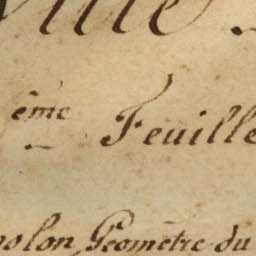 ville
ème Feuille
polon Géomètre du